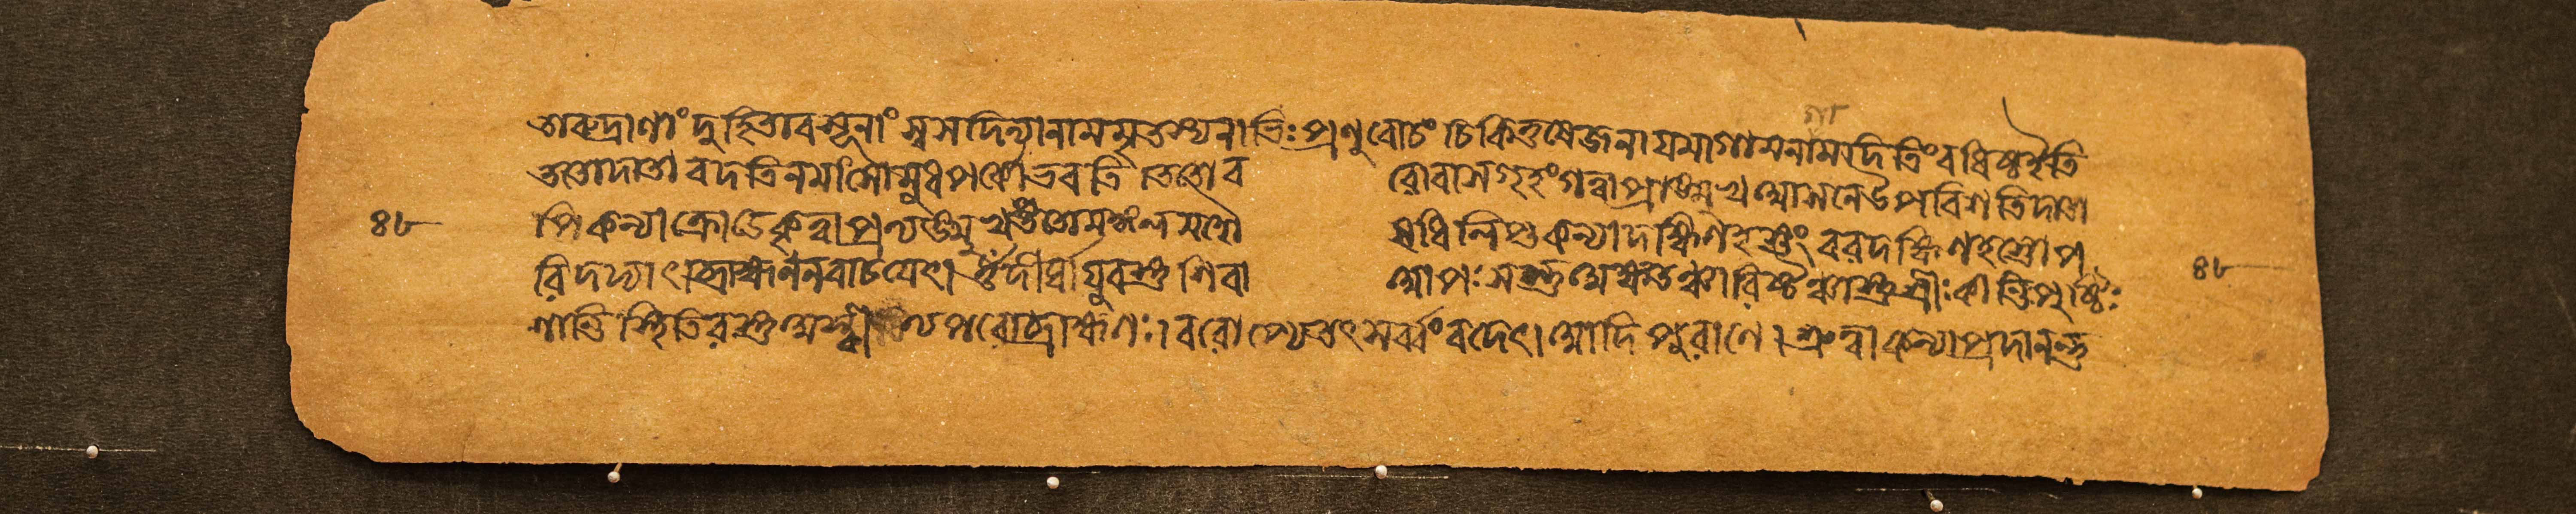 তারুদ্রাণাং দুহিতাবসূনাং স্বসাদিত্যানামমৃতস্যনাভিঃ প্রণুবোচং চিকিতুষেজনায়মাগামনাগামদিতিংবধিষ্টইতি
ততোদাতা বদতিনমাংসোমধুপর্কোভবতি ততোব রোবাসগৃহংগত্বাপ্রাঙ্মুখআসনেউপবিশতিদাতা
৪৮ পিকন্যাক্রোডেকৃত্বাপ্রত্যঙ্মুখ ততোমঙ্গল সর্বৌষধিলিপ্তকন্যাদক্ষিণহস্তং বরদক্ষিণহস্তোপ
রিদদ্যাৎ। ব্রাহ্মণেনবাচয়েৎ। ওঁদীর্ঘায়ুরস্তু শিবা আপঃসন্তু কীর্ত্তি ৪৮
শান্তি স্থিতিরস্তু ব্রাহ্মণঃ। বরোপ্যেতৎসর্ব্বংবদেৎ। আদিপুরাণে। শ্রুত্বাকন্যাপ্রদানন্তু